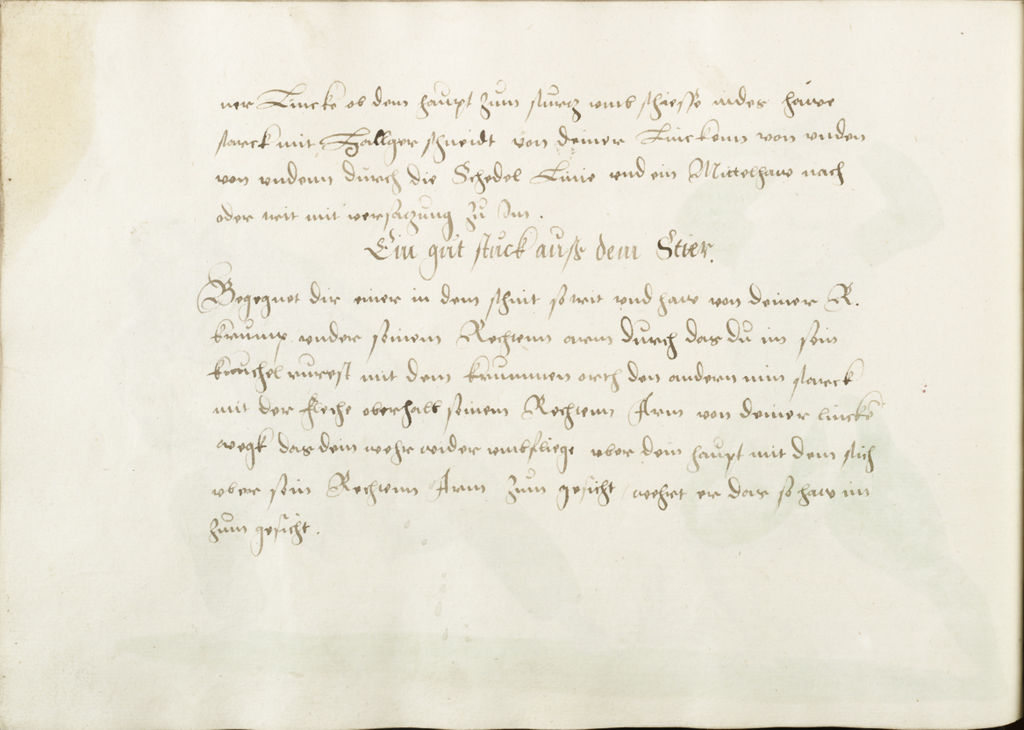 ner Lincke ob dem haupt zum sturtz umb schiesse indes hauwe
starck mit Hallger schneidt von deiner Linckenn von unden
von undenn durch die Schedel Linie und ein Mittelhauw nach
oder trit mit versatzung zu Im.
Ein gut stuck auß dem Stier.
Begegnet dir einer in dem schnit so trit und hauw von deiner R.
krump under seinem Rechtenn arm durch das du im sein
knuchel rurest mit dem krummen orth den andern nim starck
mit der fleche oberhalb seinem Rechtenn Arm von deiner lincke
wegk das dein wehr wider umbfliege uber dein haupt mit dem stich
uber sein Rechtenn Arm zum gesicht / wehret er das so hauw im
zum gesicht.